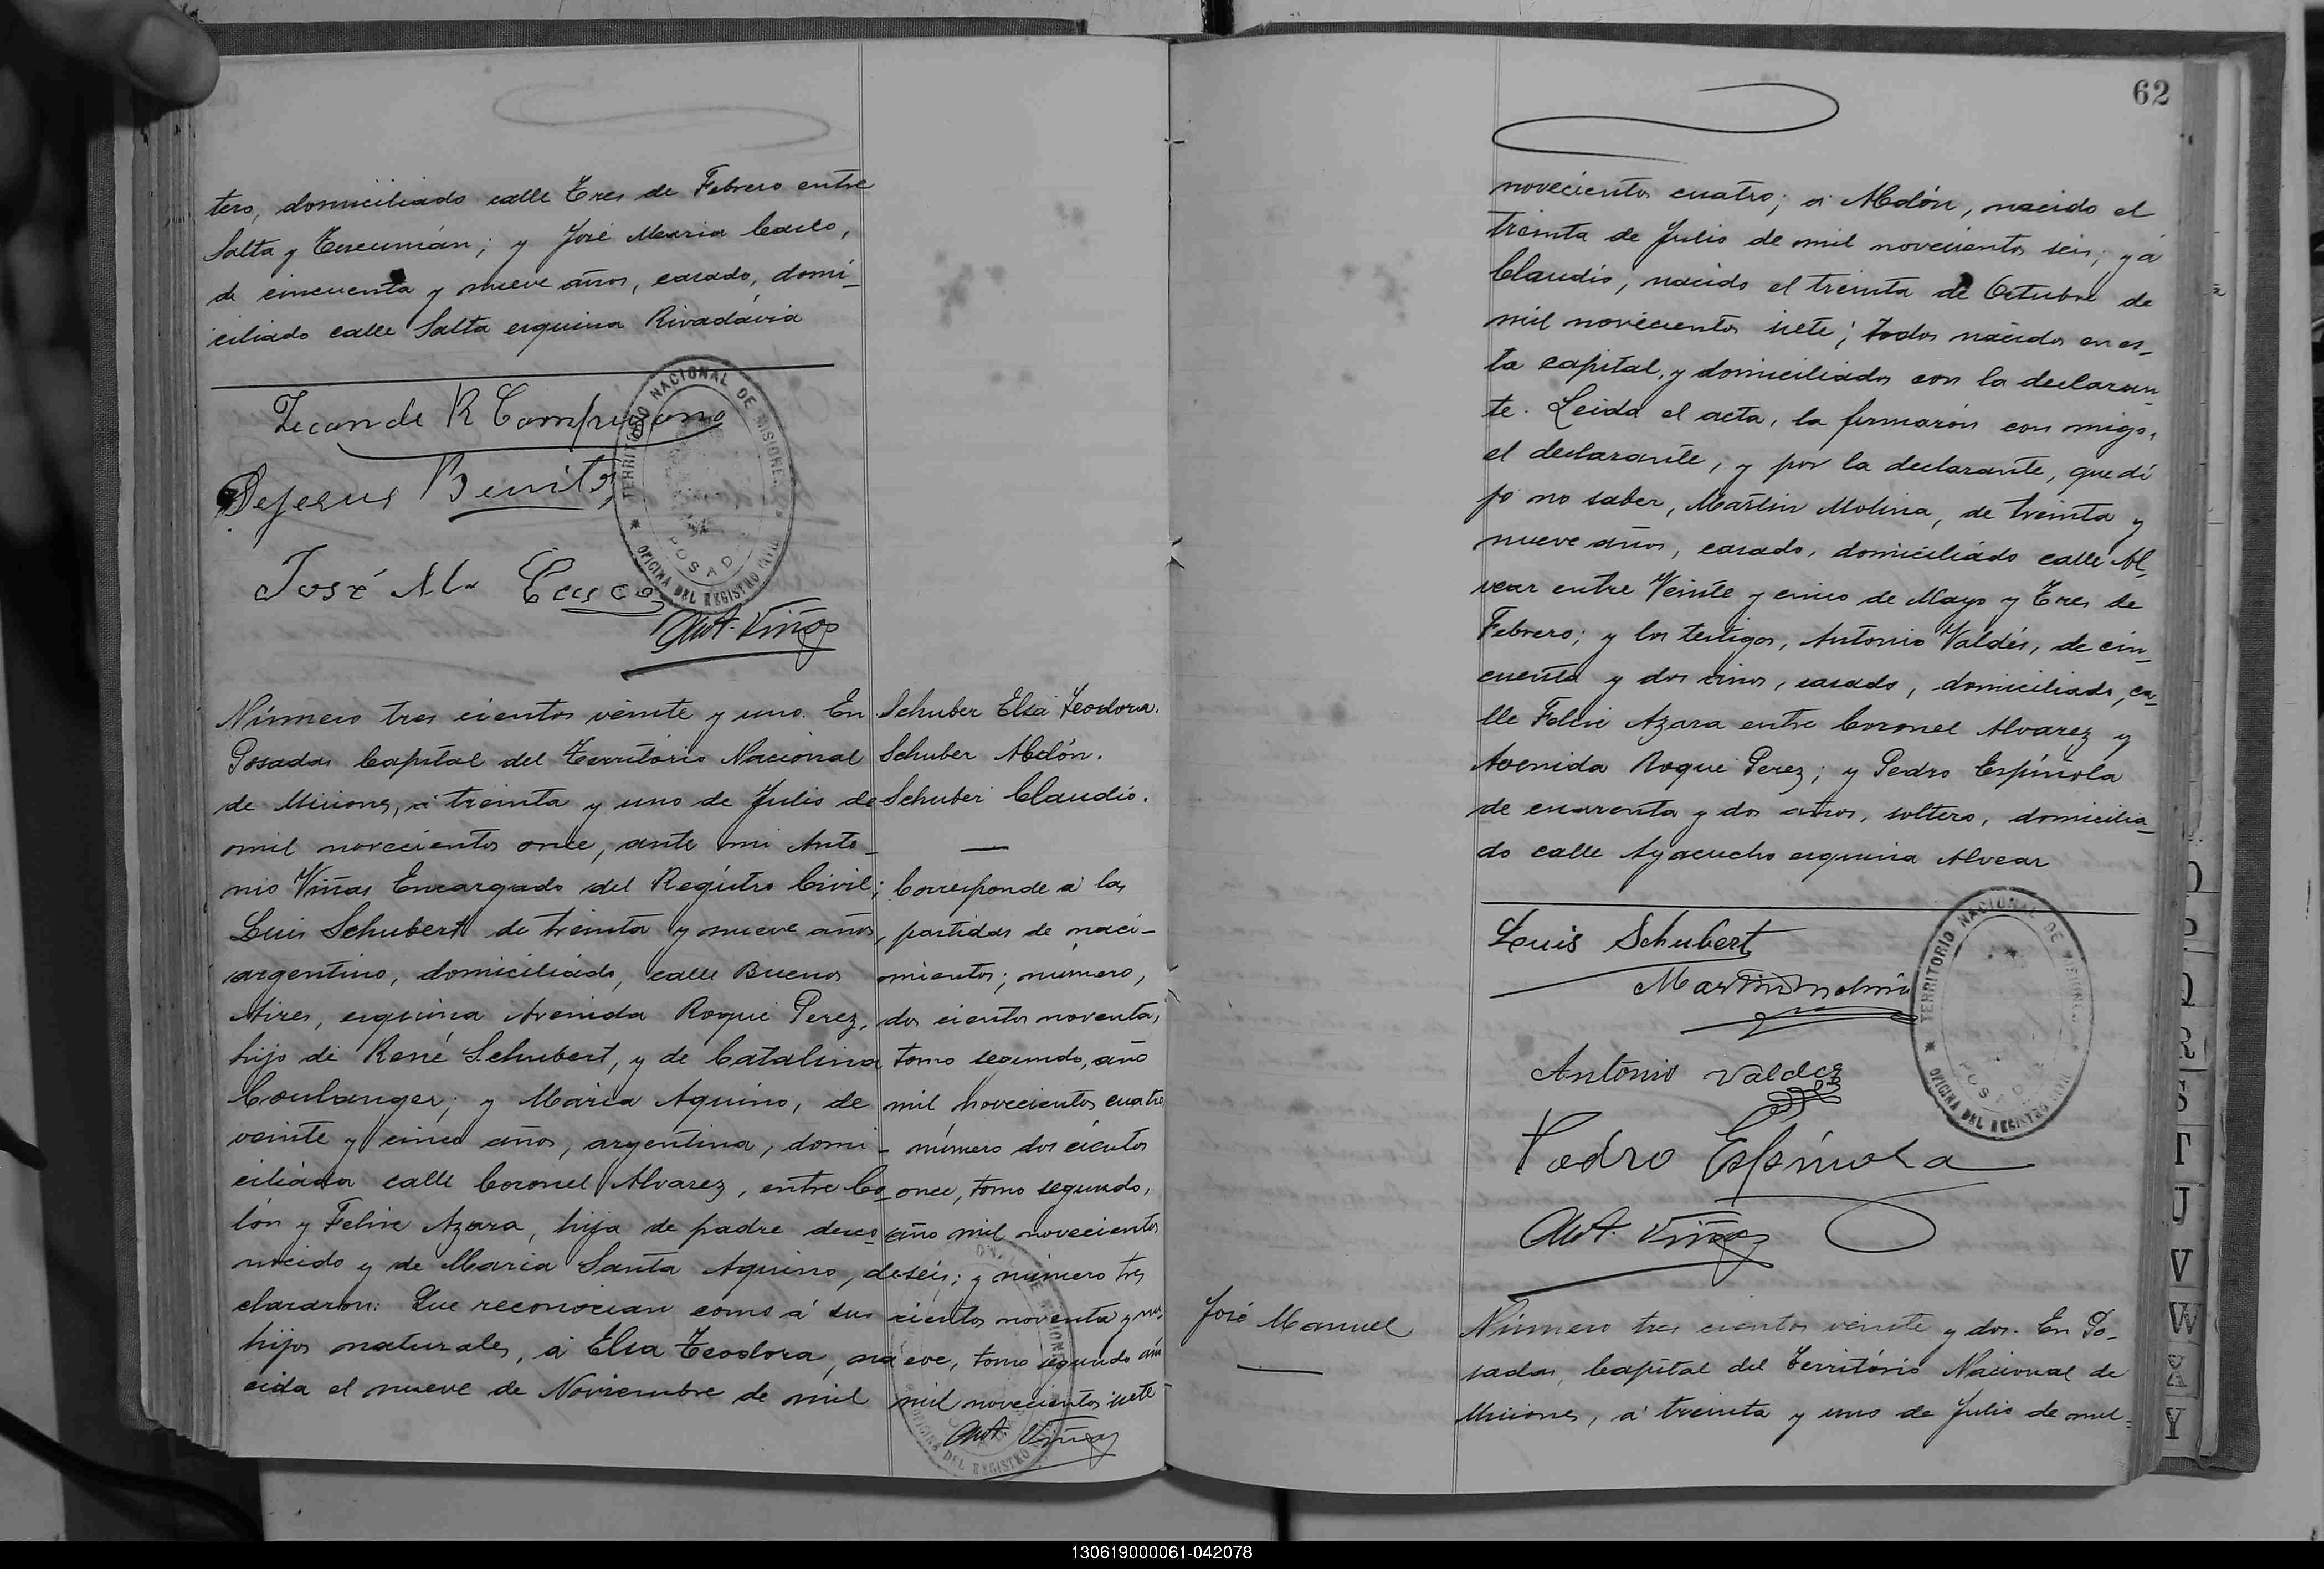 tero, domiciliado calle Tres de Febrero entre
Salta y Tucumán; y José Maria
de cincuenta y nueve años, casado, domi-
ciliado calle Salta esquina Rivadávia
R Campusano
Dejesus Benitz
José Ma
TERRITORIO NACIONAL DE MISIONES
POSADAS
OFICINA DEL REGISTRO CIVIL
Ant. Viñas
Número tres cientos veinte y uno. En
Posadas Capital del Território Nacional
de Misiones, á treinta y uno de Julio de
mil novecientos once, ante mi Anto-
nio Viñas Encargado del Registro Civil;
Luis Schubert de treinta y nueve años,
argentino, domiciliado, calle Buenos
Aires, esquina Avenida Roque Perez,
hijo de René Schubert, y de Catalina
Coulanger; y Maria Aquino, de
veinte y cinco años, argentina, domi-
ciliada calle Coronel Alvarez, entre Co-
lón y Felix Azara, hija de padre desco-
nocido y de Maria Santa Aquino, de
clararon: Que reconocian como á sus
hijos naturales, á Elsa Teodora, na
cida el nueve de Noviembre de mil
Schuber Elsa Teodora.
Schuber Abdón.
Schuber Claudio.
Corresponde á las
partidas de naci-
mientos; número,
dos cientos noventa,
tomo segundo, año
mil novecientos cuatro
número dos cientos
once, tomo segundo,
año mil novecientos
seis; y número tres
cientos noventa y nu
eve, tomo segundo año
mil novecientos siete
Ant. Viñas
OFICINA DEL REGISTRO
62
novecientos cuatro; á Abdón, nacido el
treinta de Julio de mil novecientos seis; y á
Claudio, nacido el treinta de Octubre de
mil novecientos siete; todos nacidos en es-
ta capital, y domiciliados con la declaran-
te. Leida el acta, la firmarón con migo,
el declarante, y por la declarante, que di
jo no saber, Martin Molina, de treinta y
nueve años, casado, domiciliado calle Al-
vear entre Veinte y cinco de Mayo y Tres de
Febrero; y los testigos, Antonio Valdés, de cin-
cuenta y dos años, casado, domiciliado, ca-
lle Felix Azara entre Coronel Alvarez y
Avenida Roque Perez; y Pedro Espínola
de cuarenta y dos años, soltero, domicilia-
do calle Ayacucho esquina Alvear
Luis Schubert
Martin Molina
Antonio Valdez
Pedro Espínola
Ant. Viñas
TERRITORIO NACIONAL DE MISIONES
POSADAS
OFICINA DEL REGISTRO CIVIL
José Manuel
Número tres cientos veinte y dos. En Po-
sadas, Capital del Território Nacional de
Misiones, á treinta y uno de Julio de mil-
O
P
Q
R
S
T
U
V
W
X
Y
130619000061-042078